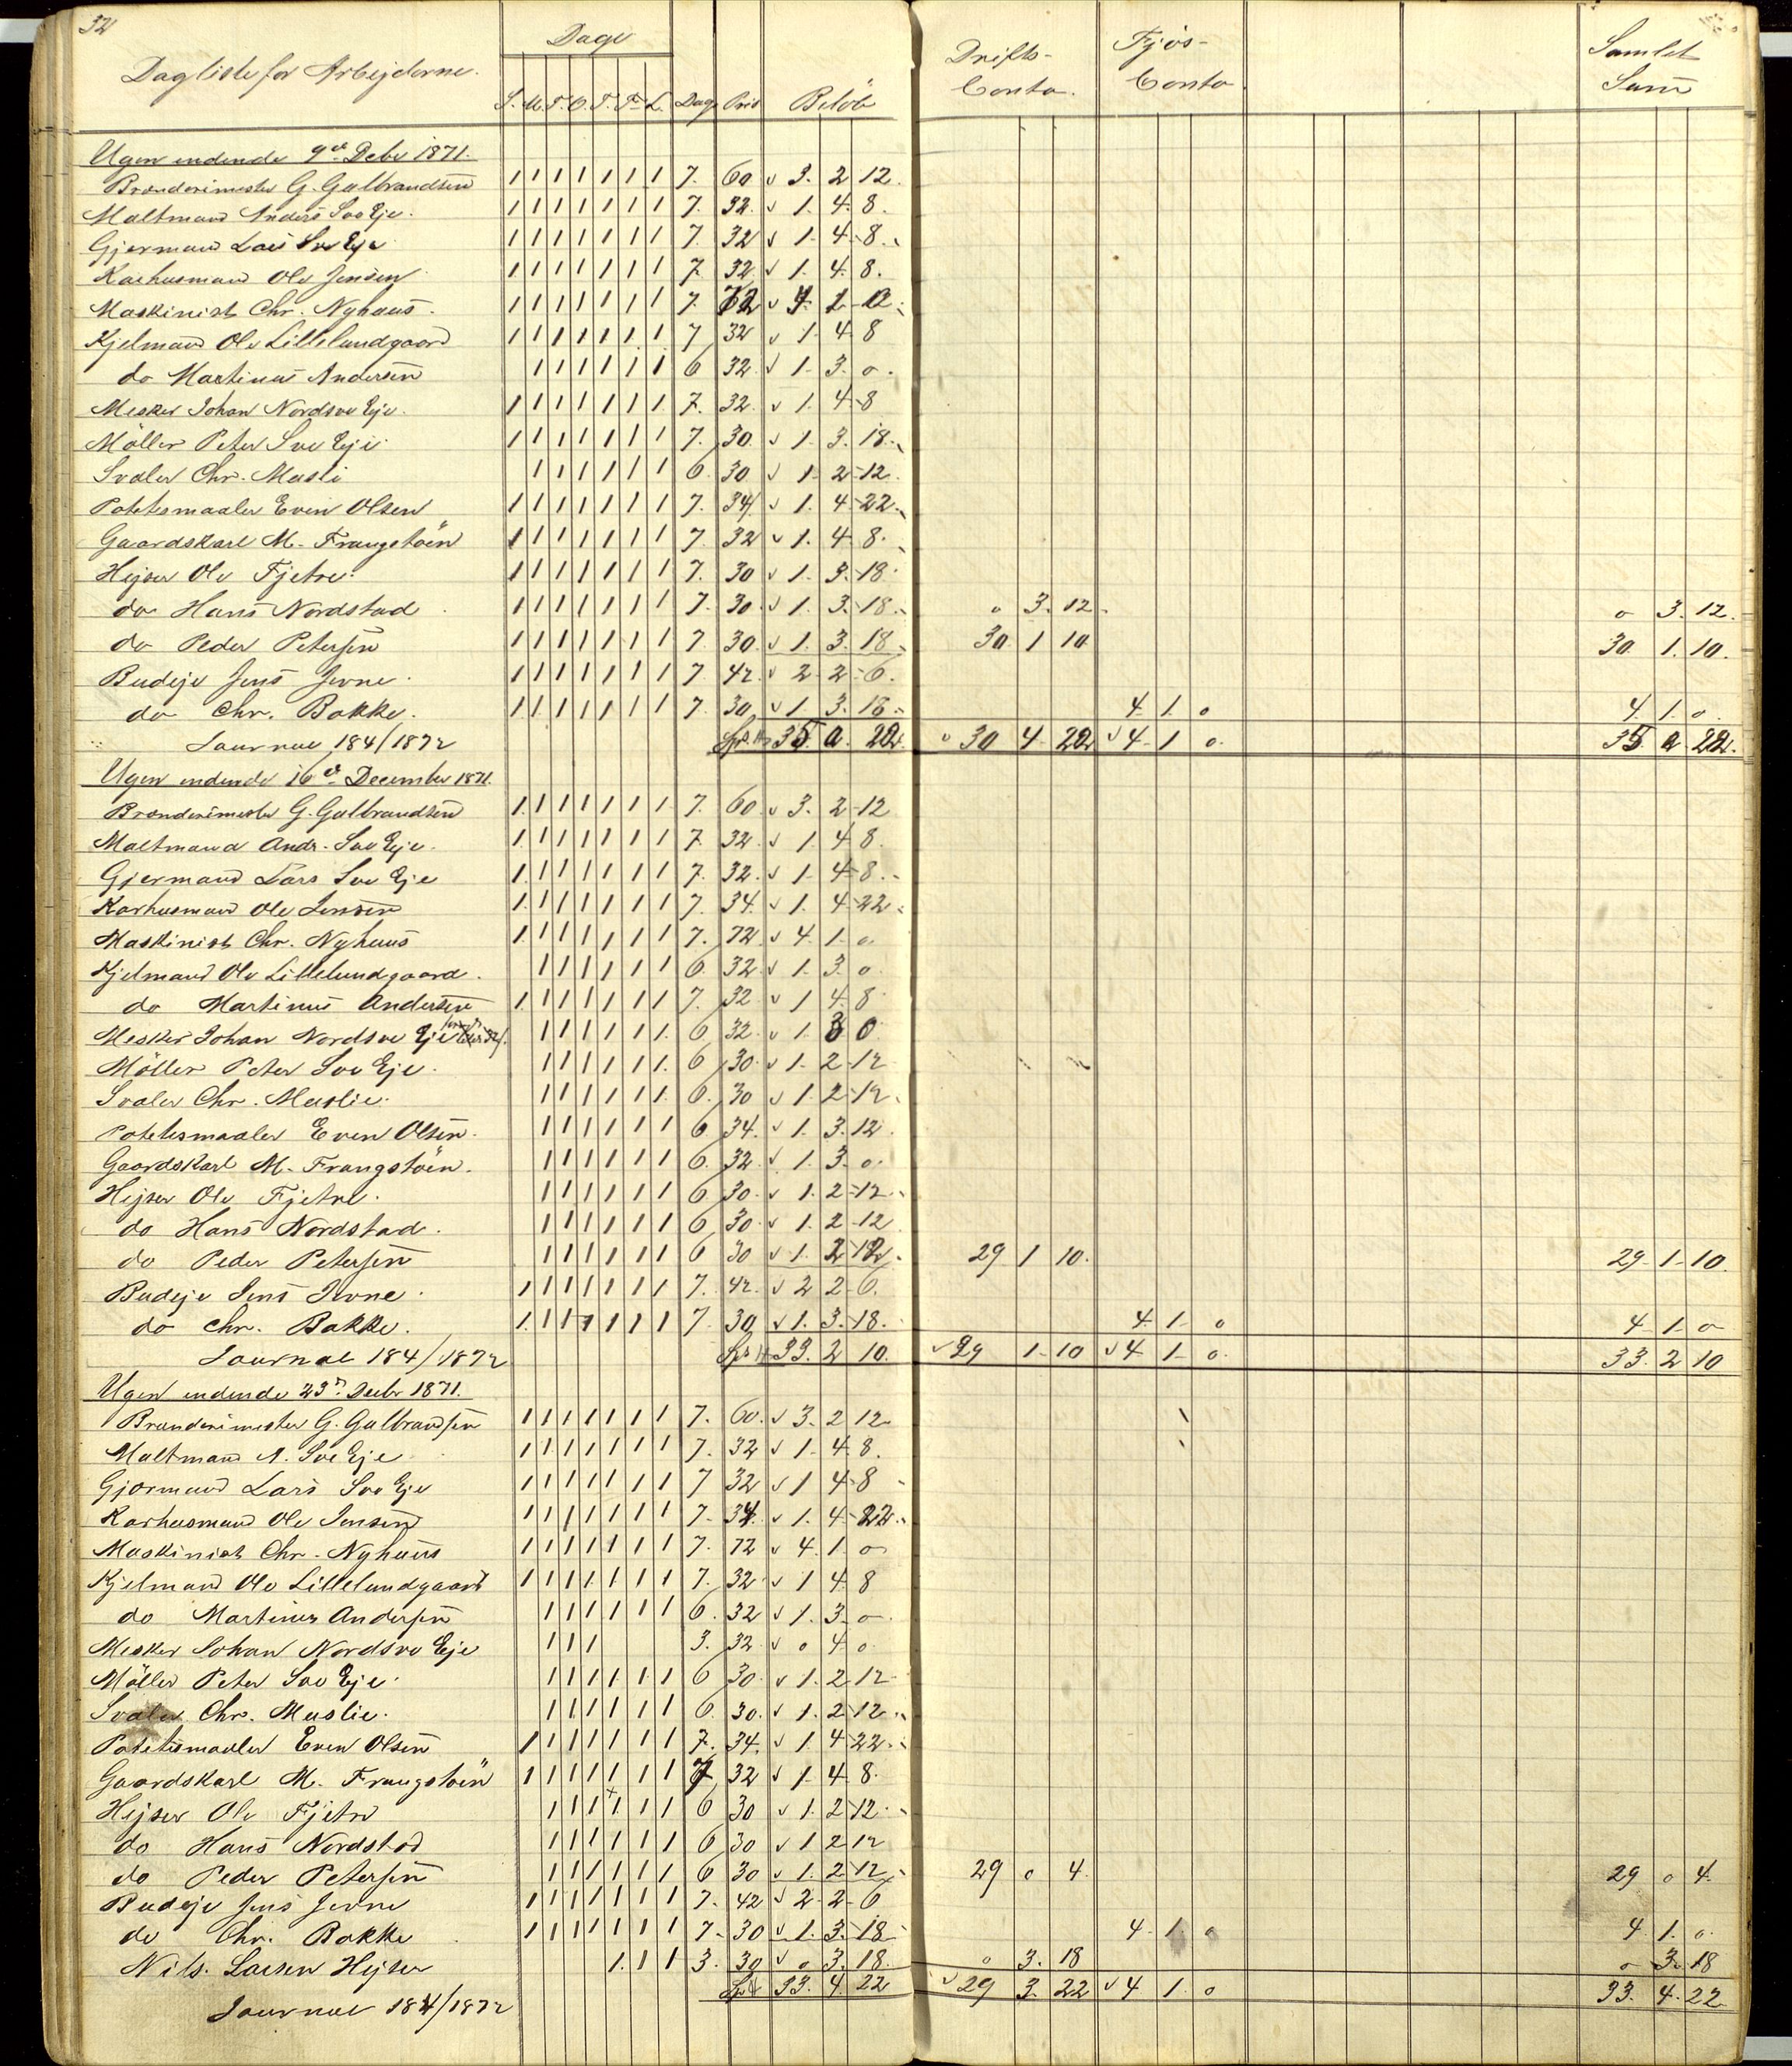 32
Dagliste for Arbejderne. Dage Drifts- Conto. Fjøs- Conto Samlet Sum
S. M. T. O. T. F. L. Dage Pris Beløb
Ugen endende 9de Decbr 1871.
Brænderimester G. Gulbrandsen 1 1 1 1 1 1 1 7. 60 3. 2 12.
Maltmand Anders Soo Eje. 1 1 1 1 1 1 1 7. 32. 1. 4. 8.
Gjærmand Lars Soo Eje 1 1 1 1 1 1 1 7. 32 1. 4. 8.
Karhusmand Ole Jensen 1 1 1 1 1 1 1 7. 32 1. 4. 8.
Maskinist Chr. Nyhuus. 1 1 1 1 1 1 1 7. 72 4. 1 0.
Kjelmand Ole Lillelundgaard 1 1 1 1 1 1 1 7 32 1. 4. 8
do Martinus Andersen 1 1 1 1 1 1 6 32. 1. 3. 0.
Mesker Johan Nordsoo Eje. 1 1 1 1 1 1 1 7. 32. 1. 4. 8
Möller Peter Soo Eje. 1 1 1 1 1 1 1 7. 30. 1. 3. 18.
Svaler Chr. Musli 1 1 1 1 1 1 6. 30 1. 2. 12.
Potetesmaaler Even Olsen 1 1 1 1 1 1 1 7. 34. 1. 4. 22.
Gaardskarl M. Frangstöen 1 1 1 1 1 1 1 7. 32 1. 4. 8.
Hejser Ole Fjetre. 1 1 1 1 1 1 1 7. 30 1. 3. 18.
do Hans Nordstad 1 1 1 1 1 1 1 7. 30. 1. 3. 18. 0 3. 12. 0 3. 12.
do Peder Petersen 1 1 1 1 1 1 1 7 30. 1. 3. 18 30 1 10 30 1. 10.
Budeje Jens Jevne. 1 1 1 1 1 1 1 7. 42. 2 2. 6.
do Chr. Bakke. 1 1 1 1 1 1 1 7. 30 1 3. 18. 4. 1. 0 4. 1. 0.
Journal 184/1872 35 0. 22. 30 4. 22 4. 1 0. 35. 0 22.
Ugen endende 16de December 1871.
Brænderimester G. Gulbrandsen 1 1 1 1 1 1 1 7. 60 3. 2 12
Maltmand Andr. Soo Eje. 1 1 1 1 1 1 1 7. 32. 1 4 8.
Gjermand Lars Soo Eje 1 1 1 1 1 1 1 7. 32. 1. 4. 8.
Karhusmand Ole Jensen 1 1 1 1 1 1 1 7. 34. 1. 4. 22.
Maskinist Chr. Nyhuus 1 1 1 1 1 1 1 7. 72 4. 1. 0.
Kjelmand Ole Lillelundgaard. 1 1 1 1 1 1 6. 32. 1. 3. 0.
do Martinus Andersen 1 1 1 1 1 1 1 7. 32 1 4. 8
Mesker Johan Nordsoo Eje 1 1 1 1 1 1 6 32. 1. 3 0.
Möller Peter Soo Eje. 1 1 1 1 1 1 6 30. 1. 2. 12
Svaler Chr. Muslie. 1 1 1 1 1 1 6. 30 1. 2. 12.
Potetesmaaler Even Olsen. 1 1 1 1 1 1 6 34. 1. 3. 12.
Gaardskarl M. Frangstöen. 1 1 1 1 1 1 6. 32. 1. 3. 0.
Hejser Ole Fjetre. 1 1 1 1 1 1 6 30. 1. 2. 12.
do Hans Nordstad. 1 1 1 1 1 1 6 30. 1. 2. 12
do Peder Petersen 1 1 1 1 1 1 6 30 1. 2. 12. 29 1 10. 29. 1. 10.
Budeje Jens Jevne. 1 1 1 1 1 1 1 7. 42. 2 2. 6.
do Chr. Bakke. 1 1 1 1 1 1 1 7 30 1. 3. 18. 4. 1. 0 4. 1. 0
Journal 184/1872 33. 2 10. 29 1. 10 4. 1. 0. 33. 2 10
Ugen endende 23d Decbr 1871.
Brænderimester G. Gulbrandsen 1 1 1 1 1 1 1 7. 60. 3. 2 12
Maltmand A. Soo Eje 1 1 1 1 1 1 1 7. 32 1. 4. 8.
Gjærmand Lars Soo Eje 1 1 1 1 1 1 1 7 32 1 4. 8
Karhusmand Ole Jensen 1 1 1 1 1 1 1 7. 34. 1. 4. 22.
Maskinist Chr. Nyhuus 1 1 1 1 1 1 1 7. 72 4. 1. 0
Kjelmand Ole Lillelundgaard 1 1 1 1 1 1 1 7. 32 1 4 8
do Martinus Andersen 1 1 1 1 1 1 6. 32 1. 3. 0.
Mesker Johan Nordsoo Eje 1 1 1 3. 32. 0 4. 0.
Möller Peter Soo Eje. 1 1 1 1 1 1 6 30. 1. 2. 12
Svaler Chr. Muslie. 1 1 1 1 1 1 6. 30. 1. 2. 12.
Potetesmaaler Even Olsen 1 1 1 1 1 1 1 7. 34. 1. 4 22.
Gaardskarl M. Frangstöen 1 1 1 1 1 1 1 7 32 1. 4. 8.
Hejser Ole Fjetre 1 1 1 1 1 1 6 30 1. 2. 12.
do Hans Nordstad 1 1 1 1 1 1 6 30 1 2 12
do Peder Petersen 1 1 1 1 1 1 6 30 1. 2. 12. 29 0 4. 29 0 4.
Budeje Jens Jevne 1 1 1 1 1 1 1 7. 42 2. 2. 6
do Chr. Bakke 1 1 1 1 1 1 1 7. 30 1. 3. 18 4. 1. 0 4. 1. 0.
Nils. Larsen Hejser 1. 1 1 3. 30 0 3. 18. 0 3. 18 0 3. 18
Journal 184/1872 33. 4. 22 29 3. 22 4 1. 0 33. 4. 22